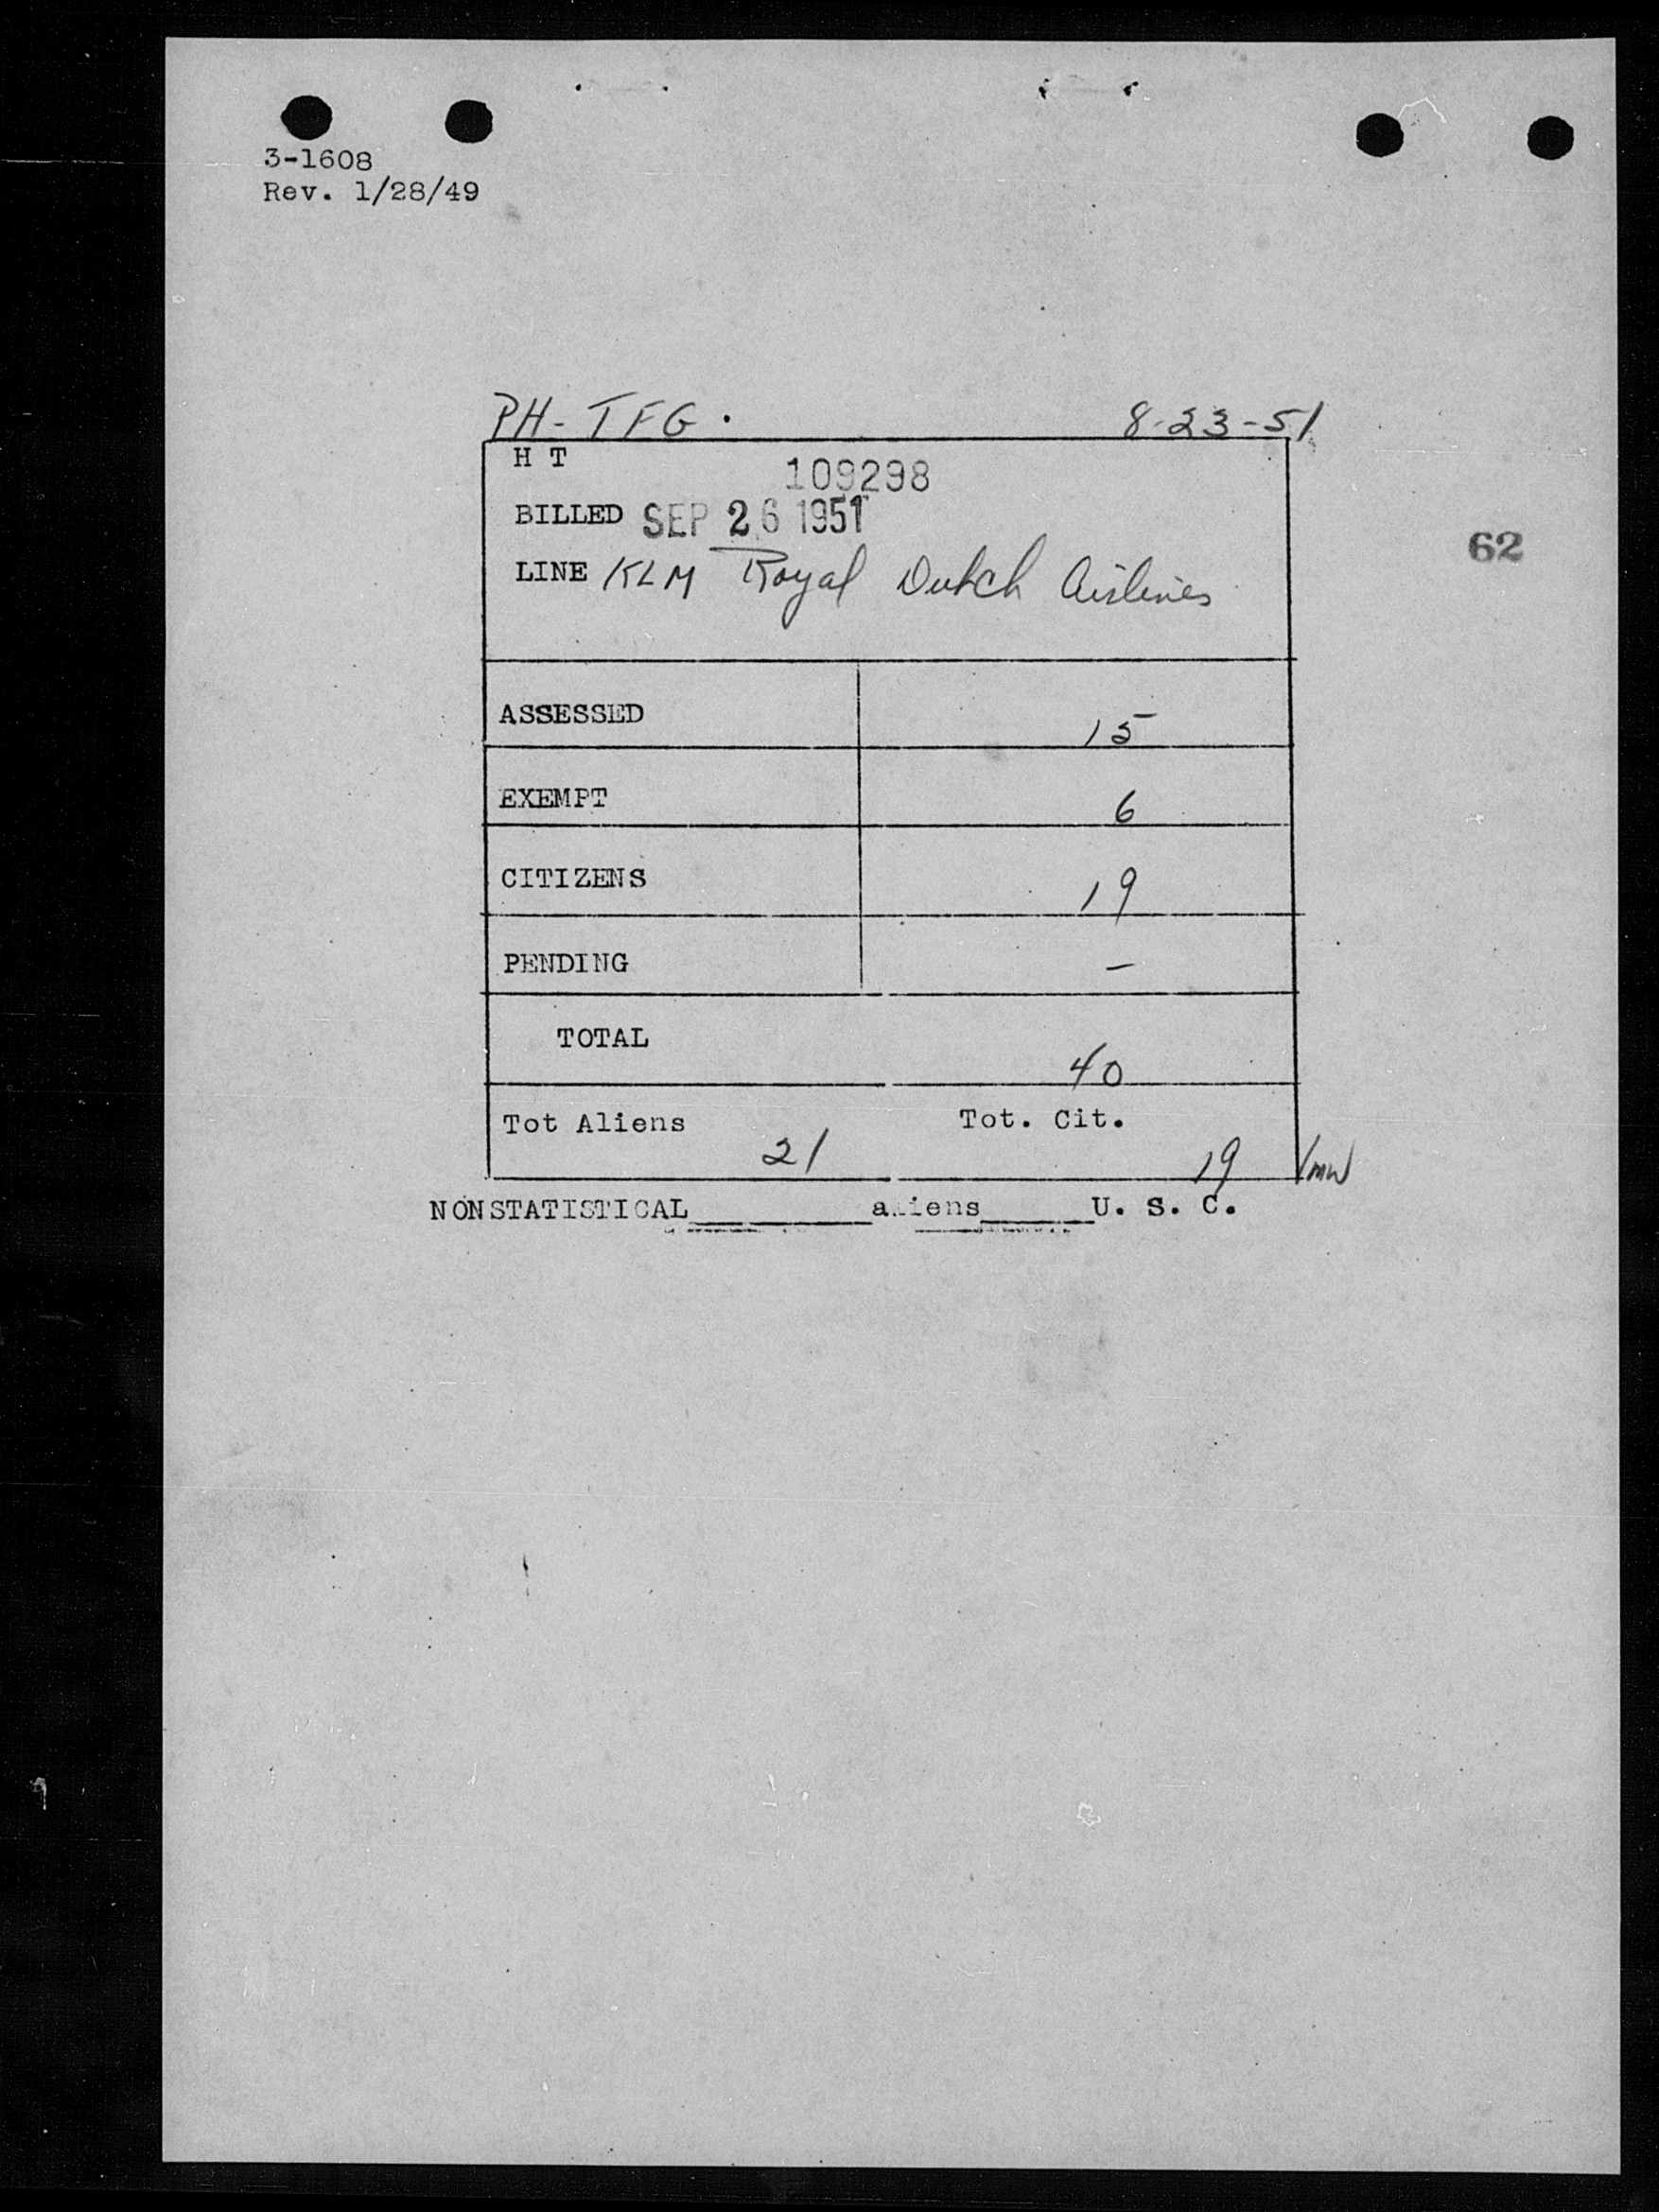 3-1608
Rev. 1/28/49
PH-TFG. 8-23-51
H T
109298
BILLED SEP 26 1951
62
LINE KLM Royal Dutch Airlines
ASSESSED 15
EXEMPT 6
CITIZENS 19
PENDING —
TOTAL 40
Tot Aliens 21 Tot. Cit. 19
NONSTATISTICAL________aliens_____U. S. C.